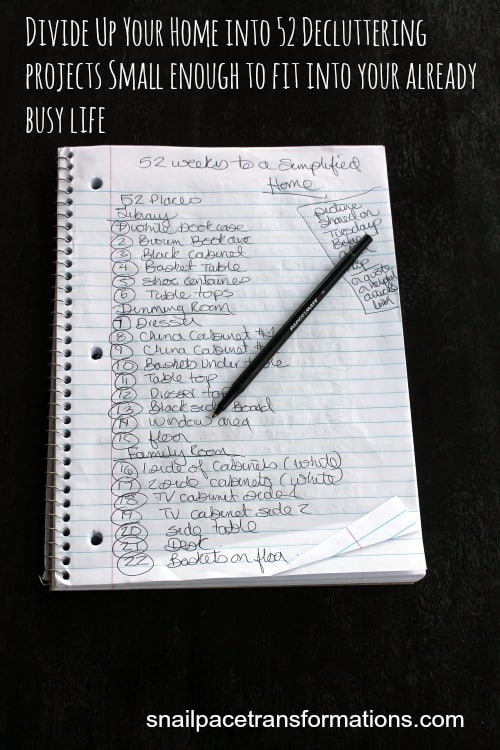 Divide Up Your Home into 52 Decluttering
projects Small enough to fit into your already
busy life
52 weeks to a Simplified
Home
52 Places
Library
1 White bookcase
2 Brown Bookcase
3 Black Cabinet
4 Basket Table
5 shoe container
6 Table tops
Dinning Room
7 Dresser
8 China Cabinet #1
9 China Cabinet #
10 Baskets under
11 Table top
12 Dresser top
13 Black side Board
14 window area
15 floor
Family Room
16 1 side of Cabinets (white)
17 2 side cabinets (white)
18 TV cabinet side 1
19 TV cabinet side 2
20 side table
21 Desk
22 Baskets on floor
picture
shared on
Tuesdays
PAPERMATE
snailpacetransformations.com